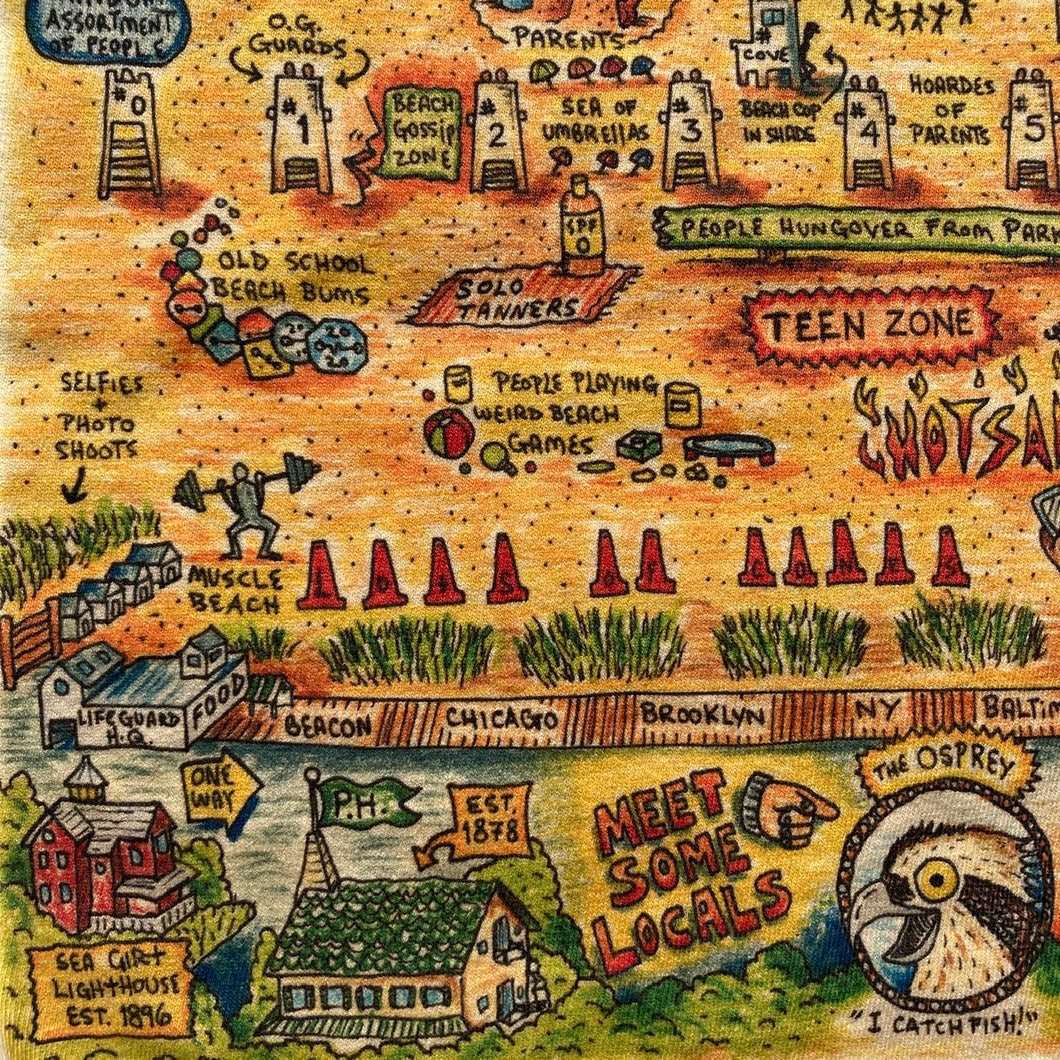 ASSORTMENT
OF PEOPLE
O.G.
GUARDS
PARENTS
# COVE
#0
#1
BEACH
GOSSIP
ZONE
#2
SEA OF
UMBRELLAS
#3
BEACH COP
IN SHADE
#4
HOARDES
OF
PARENTS
#5
SPF
0
PEOPLE HUNGOVER FROM PAR
OLD SCHOOL
BEACH BUMS
SOLO
TANNERS
TEEN ZONE
SELFIES
+
PHOTO
SHOOTS
PEOPLE PLAYING
WEIRD BEACH
GAMES
HOT SA
MUSCLE
BEACH
LOTS OF CONES
LIFEGUARD
H.Q.
FOOD
BEACON
CHICAGO
BROOKLYN
NY
BALTIM
ONE
WAY
P.H.
EST.
1878
MEET
SOME
LOCALS
THE OSPREY
SEA GIRT
LIGHTHOUSE
EST. 1896
"I CATCH FISH!"